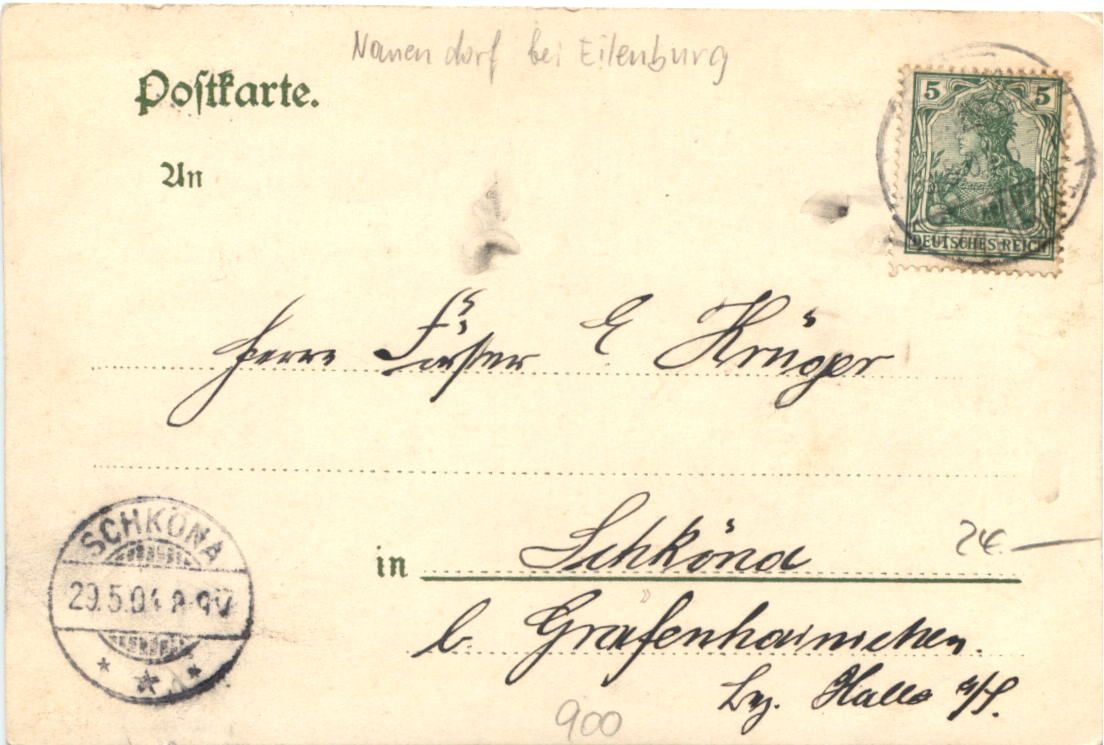 Nauendorf bei Eilenburg
Postkarte.
An
5 5
DEUTSCHES REICH
Herrn Förster E Krüger
SCHKÖNA
29.5.04 8-9V
in Schköna
24.—
b. Gräfenhainichen.
Bez. Halle a/S.
900